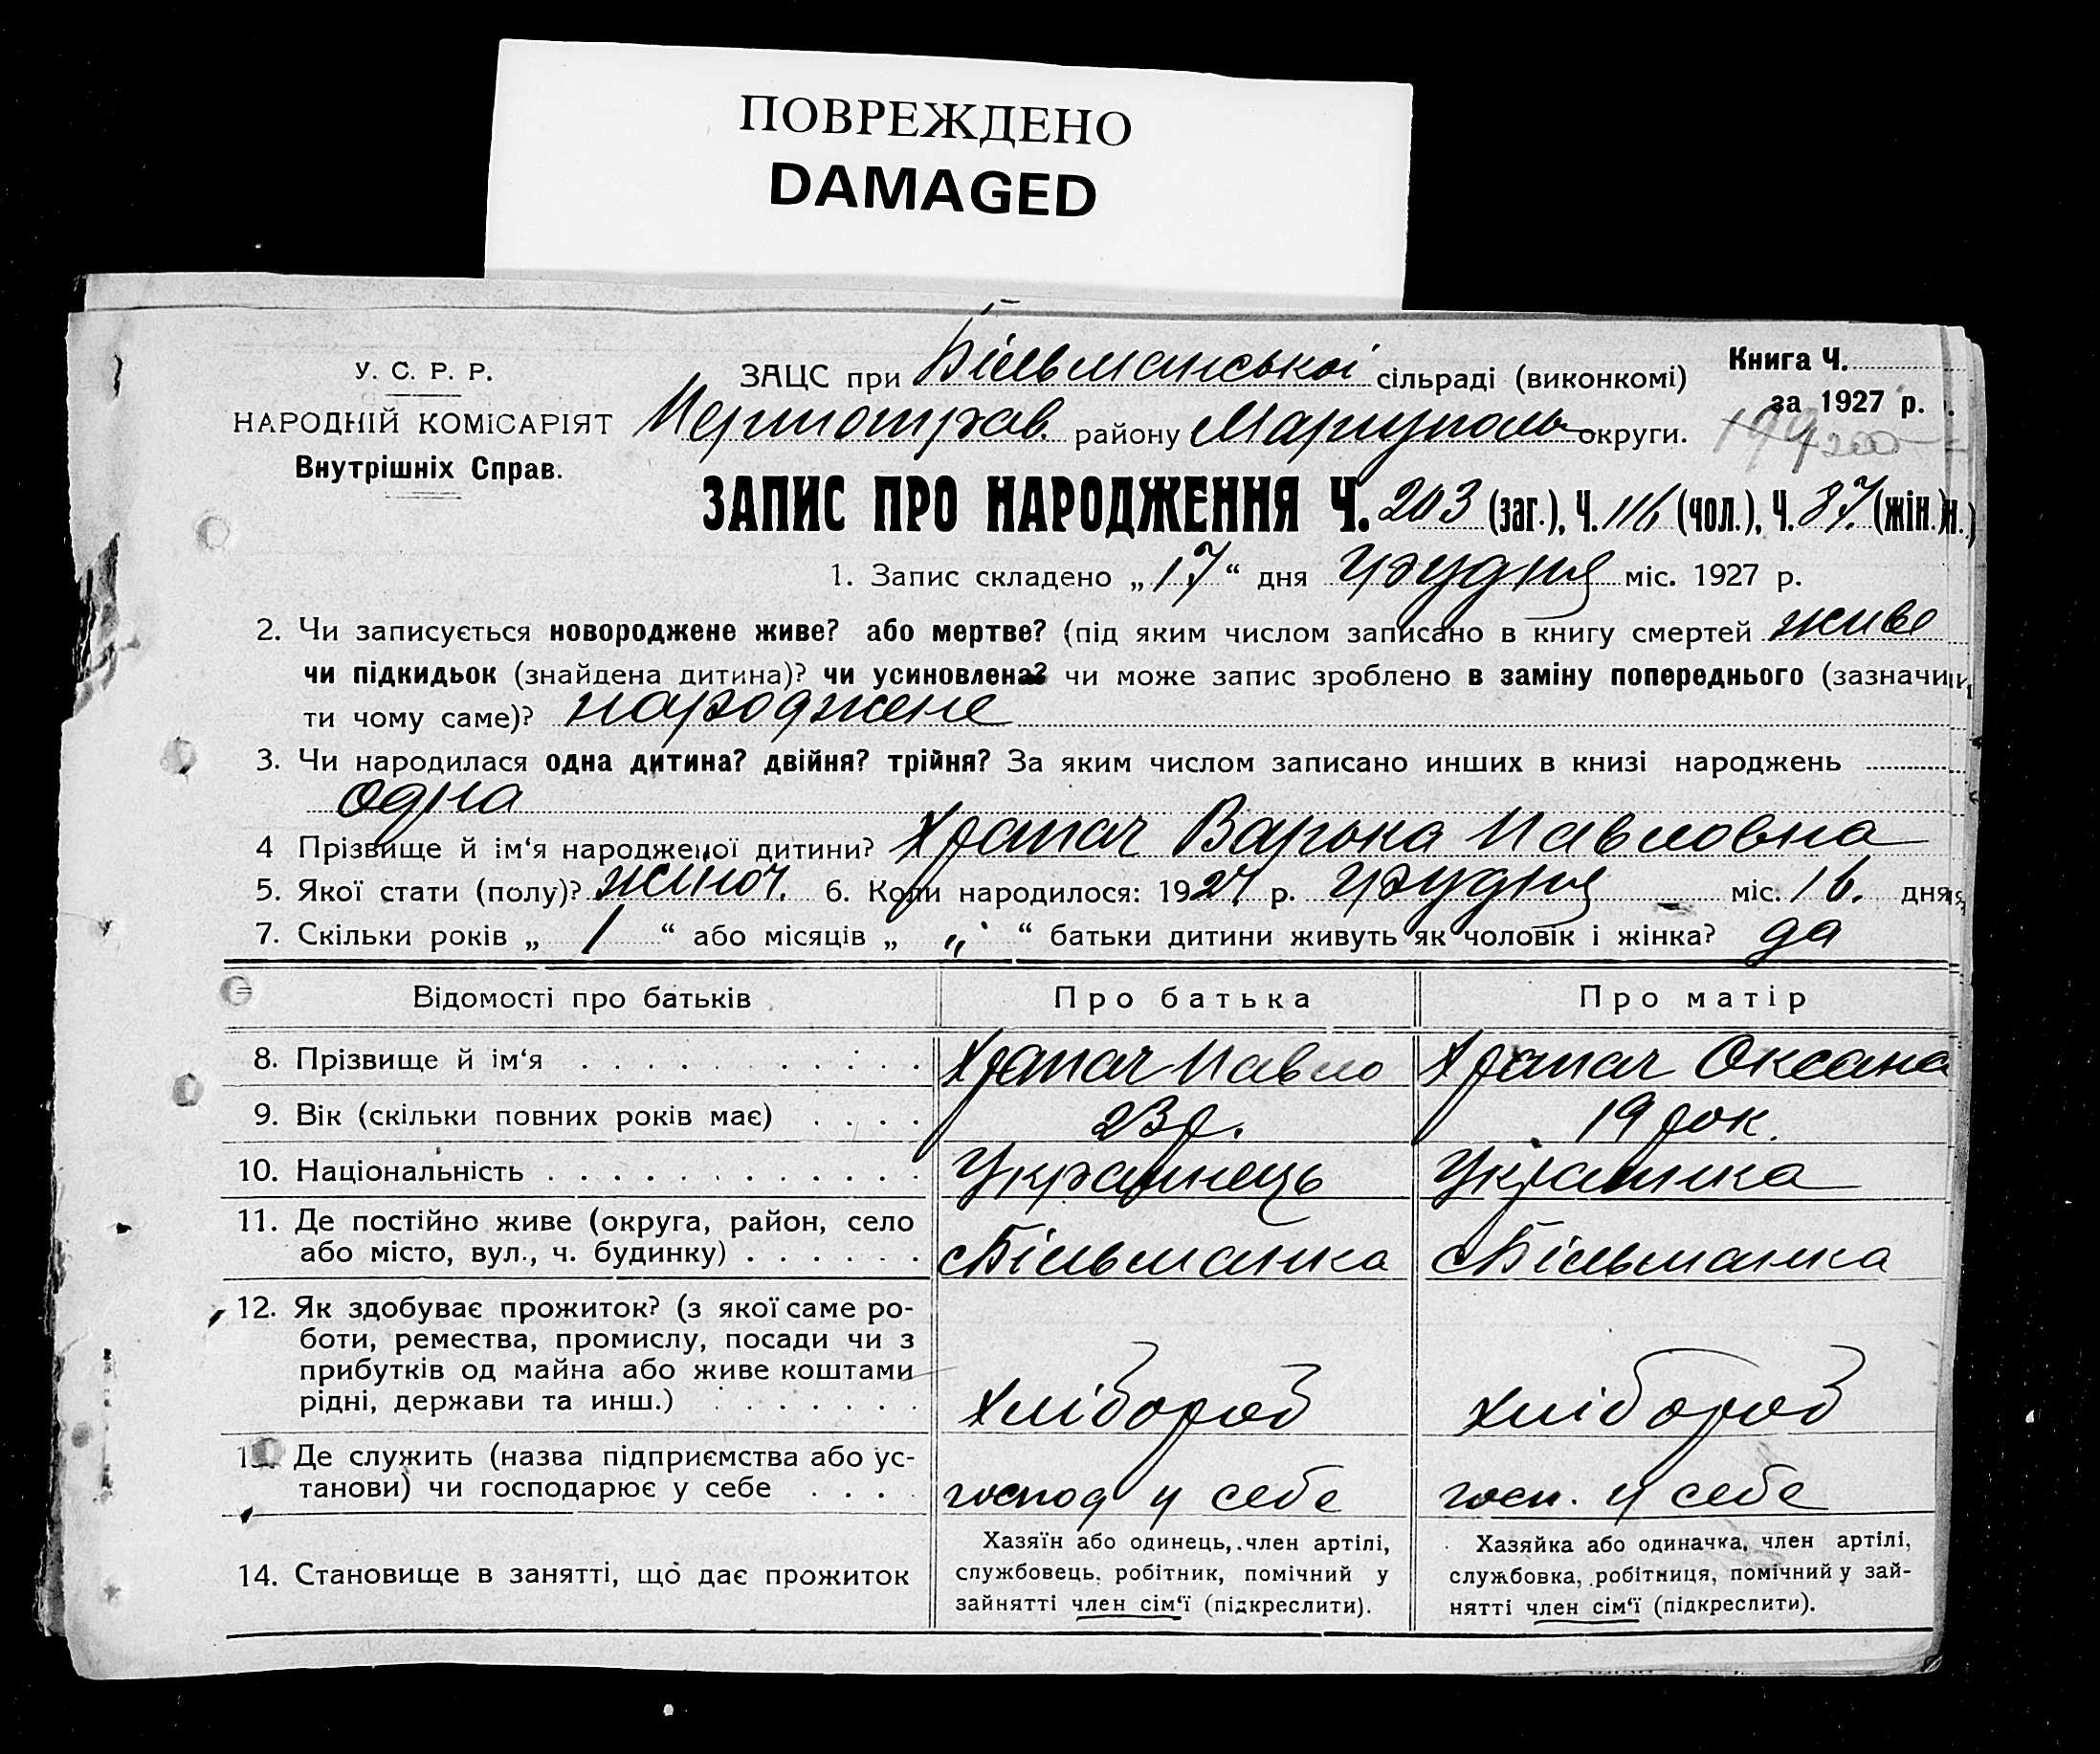 ПОВРЕЖДЕНО
DAMAGED
У. С. Р. Р.
НАРОДНІЙ КОМІСАРІЯТ
Внутрішніх Справ.
ЗАЦС при Більманської сільраді (виконкомі)
району Маріуполь округи.
Книга Ч.
за 1927 р.
199 200
ЗАПИС ПРО НАРОДЖЕННЯ Ч. 203 (заг.), Ч. 116 (чол.), Ч. 87. (жін.)
1. Запис складено „17“ дня грудня міс. 1927 р.
2. Чи записується новороджене живе? або мертве? (під яким числом записано в книгу смертей живе
чи підкидьок (знайдена дитина)? чи усиновлена? чи може запис зроблено в заміну попереднього (зазначи-
ти чому саме)? народжене
3. Чи народилася одна дитина? двійня? трійня? За яким числом записано инших в книзі народжень
одна
4 Прізвище й ім‘я народженої дитини? Храпач Варька Павловна
5. Якої стати (полу)? жіноч. 6. Коли народилося: 1927 р. грудня міс. 16. дня
7. Скільки років „ 1 “ або місяців „ „ “ батьки дитини живуть як чоловік і жінка? да
Відомості про батьків Про батька Про матір
8. Прізвище й ім‘я Храпач Павло Храпач Оксана
9. Вік (скільки повних років має) 23 р. 19 рок.
10. Національність Українець Українка
11. Де постійно живе (округа, район, село
або місто, вул., ч. будинку) с Більманка с Більманка
12. Як здобуває прожиток? (з якої саме ро-
боти, ремества, промислу, посади чи з
прибутків од майна або живе коштами
рідні, держави та инш.) хлібороб хлібороб
13. Де служить (назва підприємства або ус-
танови) чи господарює у себе господ у себе госп. у себе
14. Становище в занятті, що дає прожиток
Хазяїн або одинець, член артілі,
службовець, робітник, помічний у
зайнятті член сім‘ї (підкреслити).
Хазяйка або одиначка, член артілі,
службовка, робітниця, помічний у зай-
нятті член сім‘ї (підкреслити).